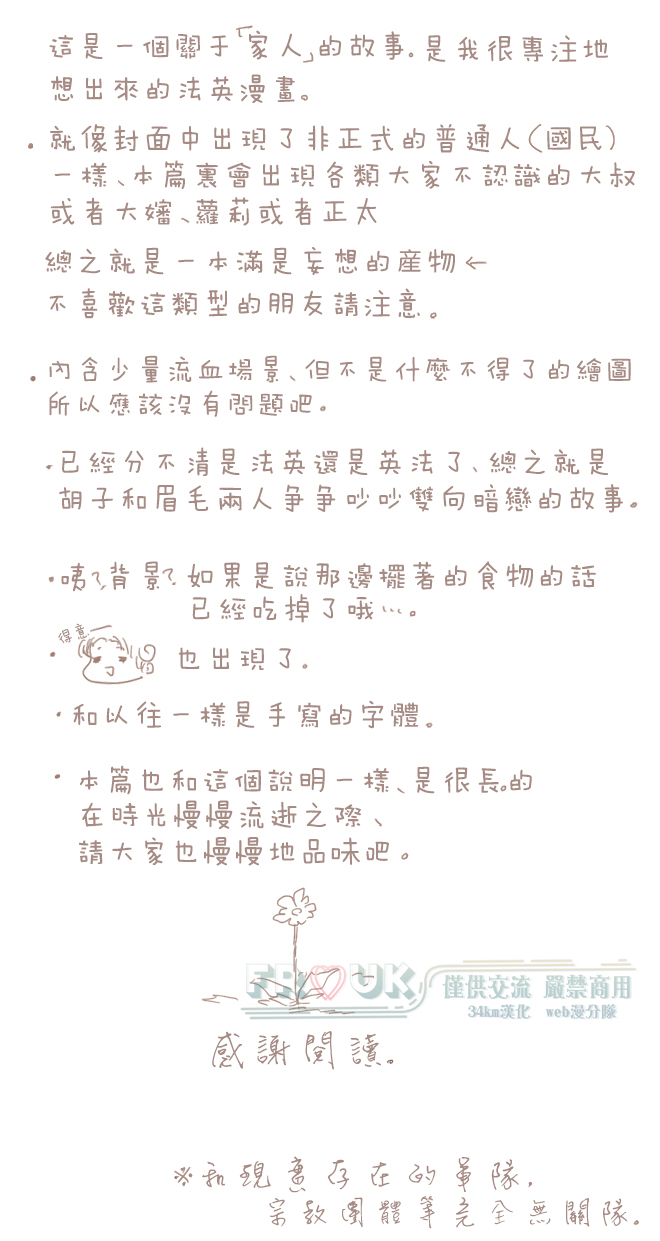 這是一個關于「家人」的故事.是我很專注地
想出來的法英漫畫。
・就像封面中出現了非正式的普通人(國民)
一樣、本篇裏會出現各類大家不認識的大叔
或者大嬸、蘿莉或者正太
總之就是一本滿是妄想的産物←
不喜歡這類型的朋友請注意。
・內含少量流血場景、但不是什麼不得了的繪圖
所以應該沒有問題吧。
・已經分不清是法英還是英法了、總之就是
胡子和眉毛兩人爭爭吵吵雙向暗戀的故事。
・咦?背景?如果是說那邊擺著的食物的話
已經吃掉了哦…。
得意
・也出現了.
・和以往一樣是手寫的字體。
・本篇也和這個說明一樣、是很長的
在時光慢慢流逝之際、
請大家也慢慢地品味吧。
FR♡UK
僅供交流 嚴禁商用
34km漢化 web漫分隊
感謝閱讀。
※和現實存在的軍隊,
宗教團體等完全無關隊。